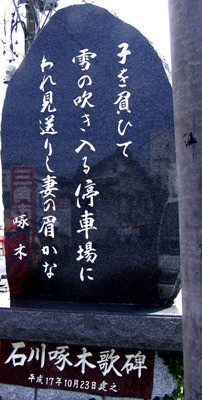 子を負ひて
雪の吹き入る停車場に
われ見送りし妻の眉かな
啄木
石川啄木歌碑
平成17年10月23日建之